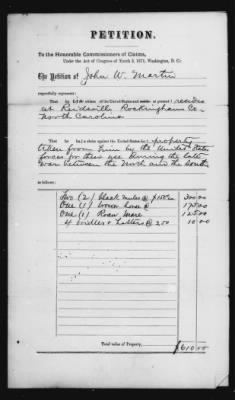 PETITION.
To the Honorable Commissioners of Claims,
Under the Act of Congress of March 3, 1871, Washington, D. C.
The Petition of John W. Martin
respectfully represents:
That he is a citizen of the United States and at present resides
at Reidsville Rockingham Co.
North Carolina
That he has a claim against the United States for property
taken from him by the United States
forces for their use during the late
war between the North and the South
as follows:
Two (2) black mules @ $150.00 300.00
One (1) horse @ 175.00
One (1) Roan Mare 125.00
4 bridles & halters @ 2.50 10.00
Total value of Property, $610.00